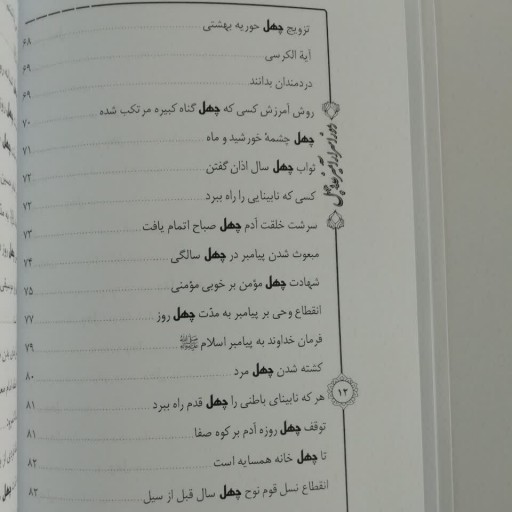 تزویج چهل حوریه بهشتی ۶۸
آیة الکرسی ۶۹
دردمندان بدانند ۶۹
روش آمرزش کسی که چهل گناه کبیره مرتکب شده ۷۰
چهل چشمهٔ خورشید و ماه ۷۱
ثواب چهل سال اذان گفتن ۷۲
کسی که نابینایی را راه ببرد ۷۲
سرشت خلقت آدم چهل صباح اتمام یافت ۷۳
مبعوث شدن پیامبر در چهل سالگی ۷۴
شهادت چهل مؤمن بر خوبی مؤمنی ۷۵
انقطاع وحی بر پیامبر به مدّت چهل روز ۷۷
فرمان خداوند به پیامبر اسلام ﷺ ۷۹
کشته شدن چهل مرد ۸۰
هر که نابینای باطنی را چهل قدم راه ببرد ۸۱
توقف چهل روزه آدم بر کوه صفا ۸۱
تا چهل خانه همسایه است ۸۲
انقطاع نسل قوم نوح چهل سال قبل از سیل ۸۲
۱۲